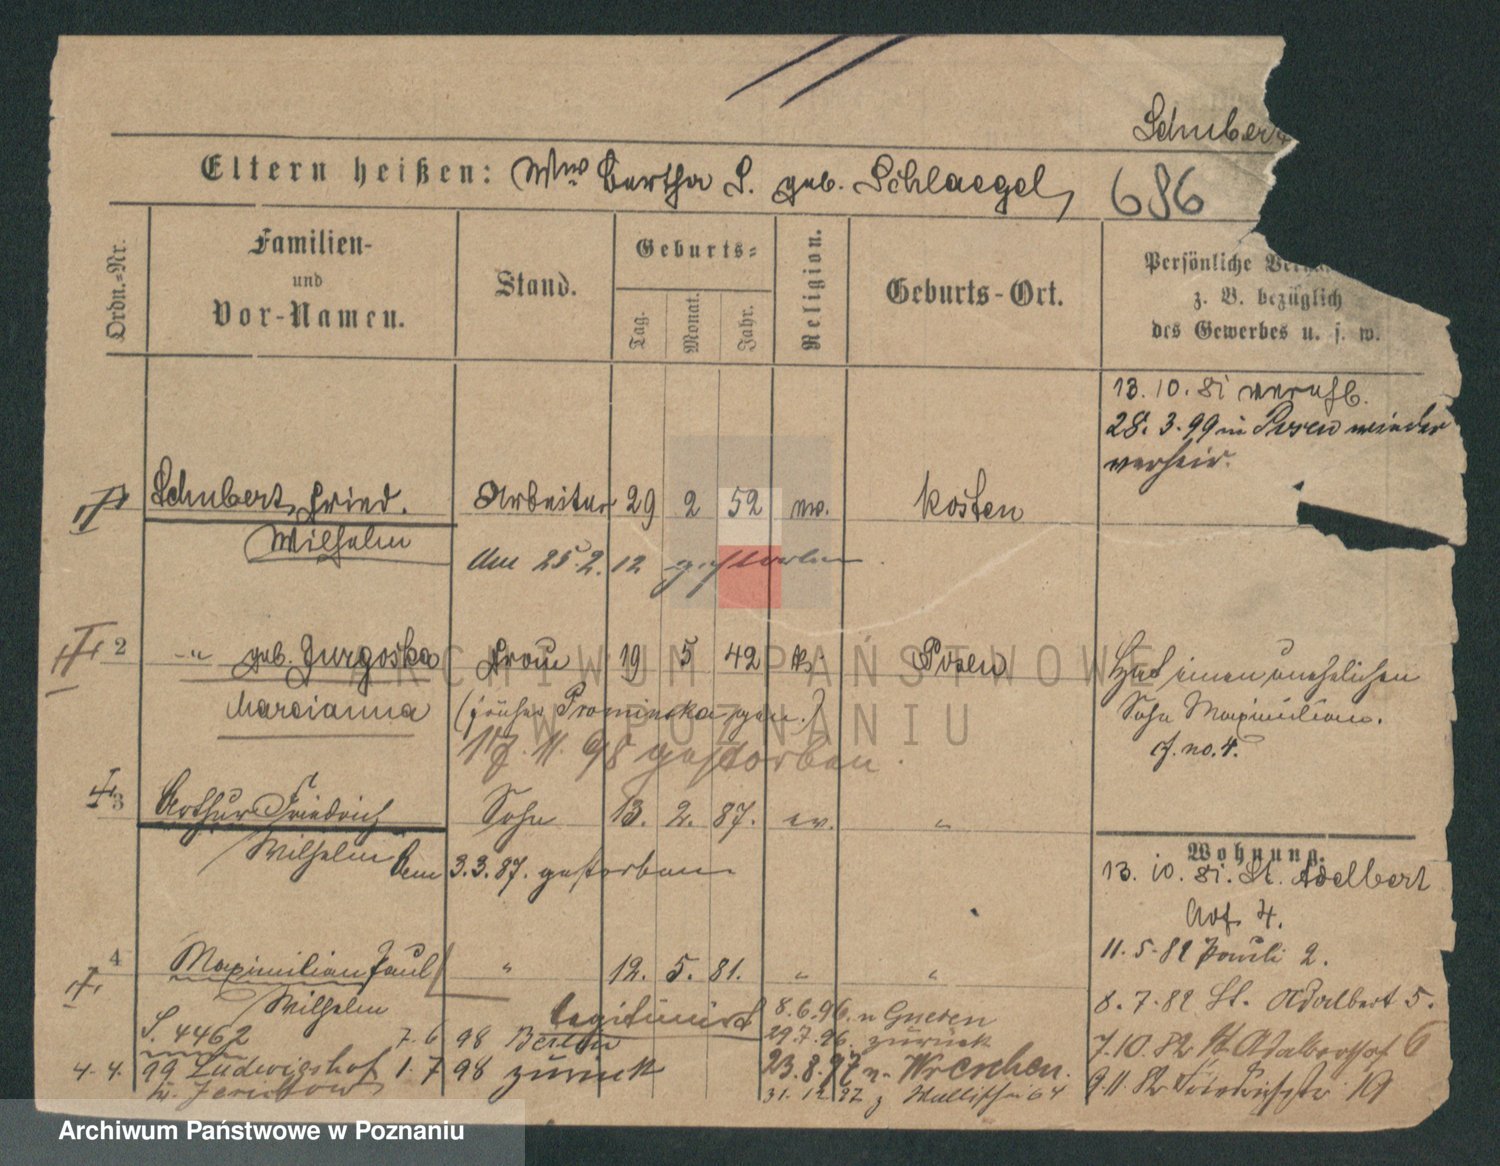 Schubert
Eltern heißen: Ww. Bertha S. geb. Schlaegel, 686
Ordn.=Nr.
Familien-
und
Vor-Namen.
Stand.
Geburts=
Tag.
Monat.
Jahr.
Religion.
Geburts-Ort.
Persönliche
z. B. bezüglich
des Gewerbes u. s. w.
13. 10. 81
28. 3. 99 in Posen wieder
verheir.
Schubert, Fried. Arbeiter 29 2 52 ev. Kosten
Wilhelm
Am 25. 2. 12 gestorben
2 " geb. Jurgoska Frau 19 5 42 k. Posen
Marcianna (früher Prominska gen.)
11. 98 gestorben.
Hat einen unehelichen
Sohn Maximilian.
cf. no. 4.
3 Arthur Friedrich Sohn 13. 2. 87. ev. "
Wilhelm Am 3. 3. 87. gestorben
Wohnung.
13. 10. 81. St. Adelbert
Hof 4.
11. 5. 82 Pauli 2.
8. 7. 82 St. Adalbert 5.
7. 10. 82 St. Adalberthof 6
9. 11. 82 Friedrichstr 19
4 Maximilian Paul " 12. 5. 81. " "
Wilhelm legitimirt
S. 4462 7. 6 98 Berlin
4. 4. 99 Ludwigshof 1. 7 98 zurück
b. Jerichow
8. 6. 96. n Gnesen
29. 7. 96. zurück
23. 8. 97 n. Wreschen.
31. 12. 97 z Wallischei 64
ARCHIWUM PAŃSTWOWE
W POZNANIU
Archiwum Państwowe w Poznaniu